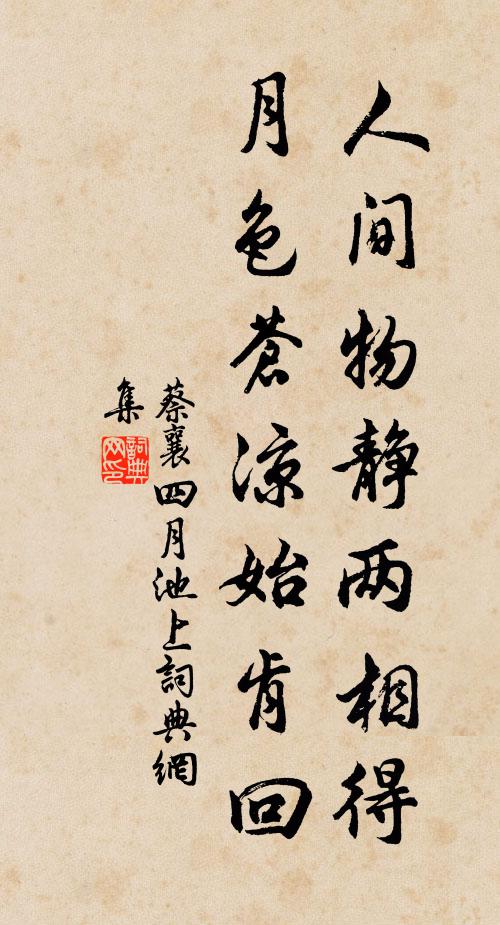 人间物静两相得
月色苍凉始肯回
蔡襄四月池上詞典網
集
詞典网印